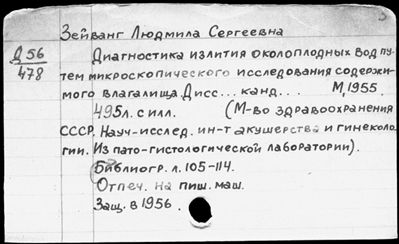 Зейванг Людмила Сергеевна
Д 56
478
Диагностика излития околоплодных вод пу-
тем микроскопического исследования содержи-
мого влагалища. Дисс... канд... М, 1955.
495л. с илл. (М-во здравоохранения
СССР. Науч-исслед. ин-т акушерства и гинеколо-
гии. Из пато-гистологической лаборатории).
Библиогр. л. 105-114.
Отпеч. на пиш. маш.
Защ. в 1956.